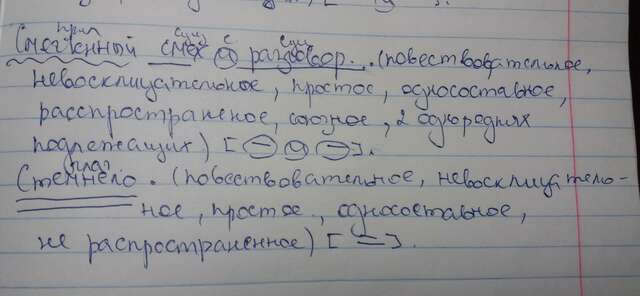 прил сущ с сущ
Смягчённый смех и разговор... (повествовательное,
невосклицательное, простое, односоставное,
расспространеное, союзное, 2 однородных
подлежащих) [ и ].
глаг
Стемнело. (повествовательное, невосклицатель-
ное, простое, односоставное,
не распространенное) [ = ].